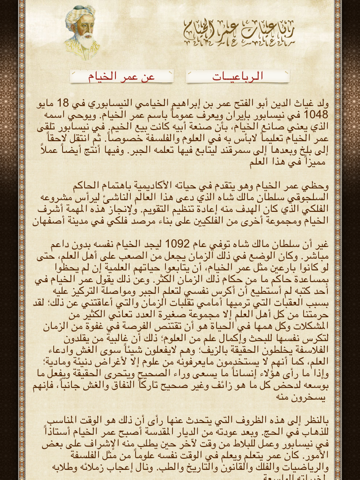 رباعيات عمر الخيام
الرباعيــات
عن عمر الخيام
ولد غياث الدين أبو الفتح عمر بن إبراهيم الخيامي النيسابوري في 18 مايو
1048 في نيسابور بإيران ويعرف عموماً باسم عمر الخيام. ويوحي اسمه
الذي يعني صانع الخيام، بأن صنعة أبيه كانت بيع الخيم. في نيسابور تلقى
عمر الخيام تعليماً لابأس به في العلوم والفلسفة خصوصاً. ثم انتقل لاحقاً
إلى بلخ وبعدها إلى سمرقند ليتابع فيها تعلمه الجبر. وفيها أنتج أيضاً عملاً
مميزاً في هذا العلم
وحظي عمر الخيام وهو يتقدم في حياته الأكاديمية باهتمام الحاكم
السلجوقي سلطان مالك شاه الذي دعى هذا العالم الناشئ ليرأس مشروعه
الفلكي الذي كان الهدف منه إعادة تنظيم التقويم. ولإنجاز هذه المهمة أشرف
الخيام ومجموعة أخرى من الفلكيين على بناء مرصد فلكي في مدينة أصفهان
غير أن سلطان مالك شاه توفي عام 1092 ليجد الخيام نفسه بدون داعم
مباشر. وكان الوضع في ذلك الزمان يجعل من الصعب على أهل العلم، حتى
لو كانوا بارعين مثل عمر الخيام، أن يتابعوا حياتهم العلمية إن لم يحظوا
بمساعدة حاكم ما من حكام ذلك الزمان الكثر. وعن ذلك يقول عمر الخيام في
أحد كتبه لم أستطيع أن أكرس نفسي لتعلم الجبر ومواصلة التركيز عليه
بسبب العقبات التي ترميها أمامي تقلبات الزمان والتي أعاقتني عن ذلك؛ لقد
حرمتنا من كل أهل العلم إلا مجموعة صغيرة العدد تعاني الكثير من
المشكلات وكل همها في الحياة هو أن تقتنص الفرصة في غفوة من الزمان
لتكرس نفسها للبحث وإكمال علم من العلوم؛ ذلك أن غالبية من يقلدون
الفلاسفة يخلطون الحقيقة بالزيف؛ وهم لايفعلون شيئاً سوى الغش وادعاء
العلم، كما أنهم لا يستخدمون مايعرفونه من علوم إلا لأغراض دنيئة ومادية؛
وإذا ما رأى هؤلاء إنساناً ما يسعى وراء الصحيح ويتحرى الحقيقة ويفعل ما
بوسعه لدحض كل ما هو زائف وغير صحيح تاركاً النفاق والغش جانباً، فإنهم
يسخرون منه
بالنظر إلى هذه الظروف التي يتحدث عنها رأى أن ذلك هو الوقت المناسب
للذهاب في الحج. وبعد عودته من الديار المقدسة أصبح عمر الخيام أستاذاً
في نيسابور وعمل للبلاط من وقت لآخر حين يطلب منه الإشراف على بعض
الأمور. كان عمر يتعلم ويعلم في الوقت نفسه علوماً من مثل الفلسفة
والرياضيات والفلك والقانون والتاريخ والطب. ونال إعجاب زملائه وطلابه
لخبراته الواسعة